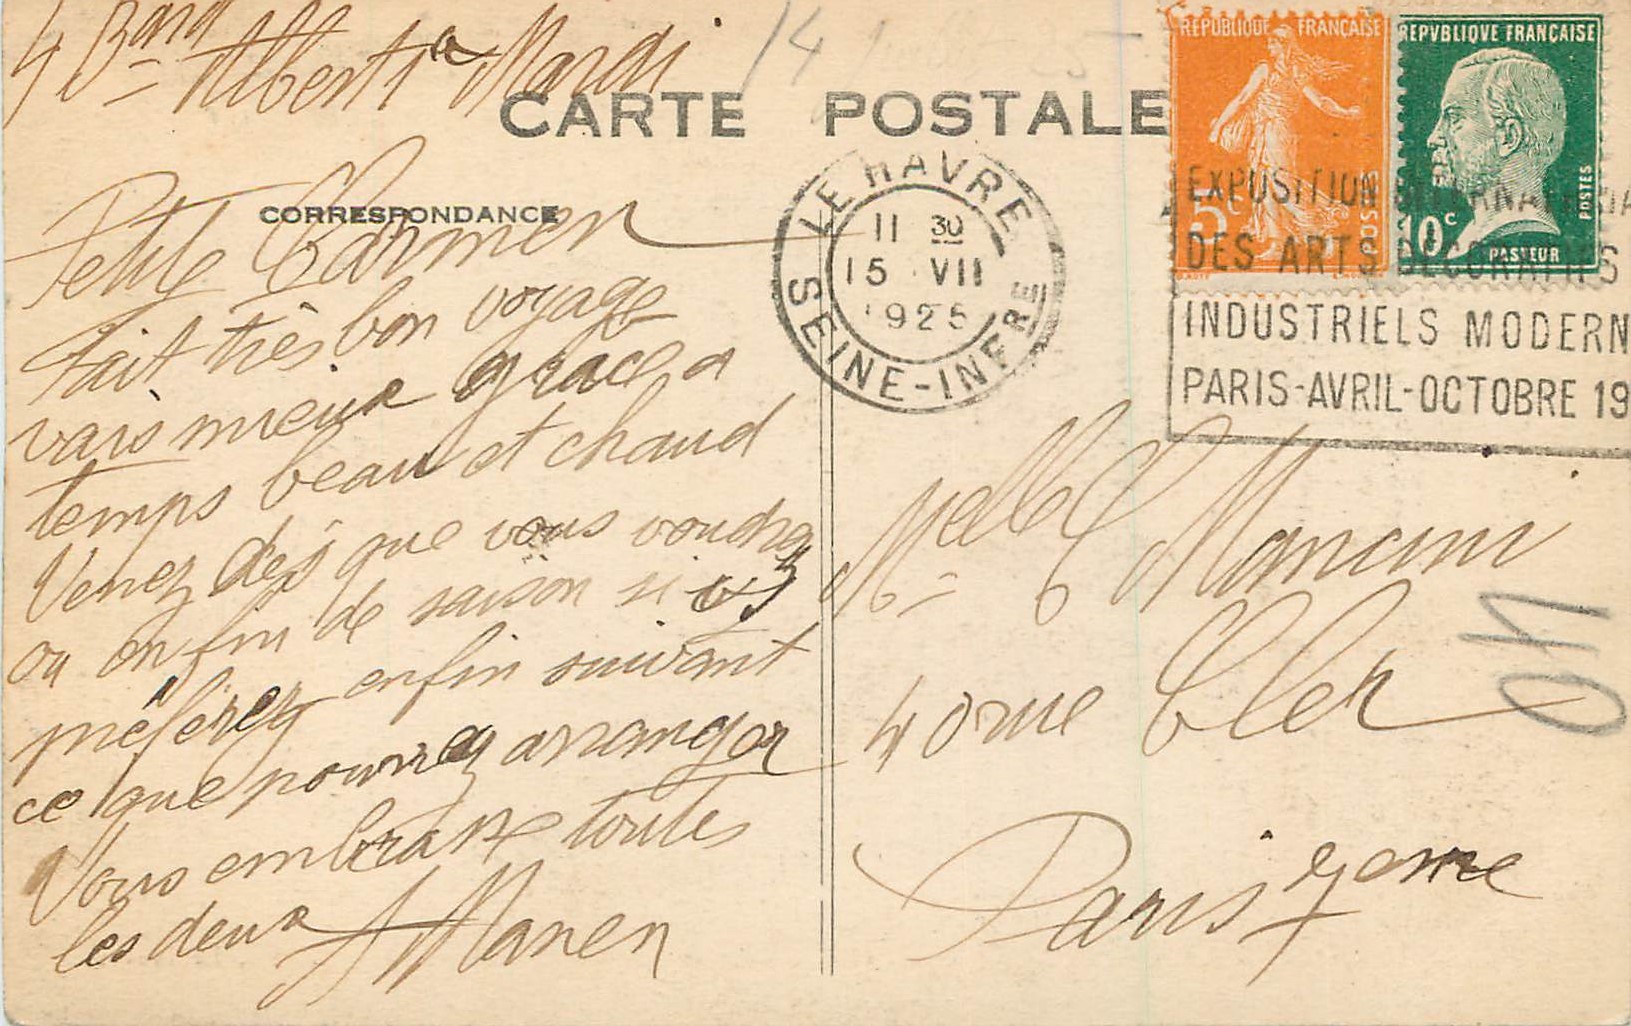 4 Bard Albert 1er Mardi
14 Juillet 25
CARTE POSTALE
CORRESPONDANCE
REPUBLIQUE FRANÇAISE
5c
POSTES
REPVBLIQVE FRANÇAISE
10c
POSTES
PASTEUR
LE HAVRE
11 30
15 VII
1925
SEINE-INFRE
EXPOSITION INTERNATIONA
DES ARTS DÉCORATIFS
INDUSTRIELS MODERN
PARIS-AVRIL-OCTOBRE 19
Petite Carmen
fait très bon voyage
vais mieux grace a
temps beau et chaud
Venez dès que vous voudrez
ou en fin de saison si vs
préférez enfin suivant
ce que pourrez arranger
Vous embrasse toutes
les deux
Melle C Mancini
40 rue Cler
Paris 7eme